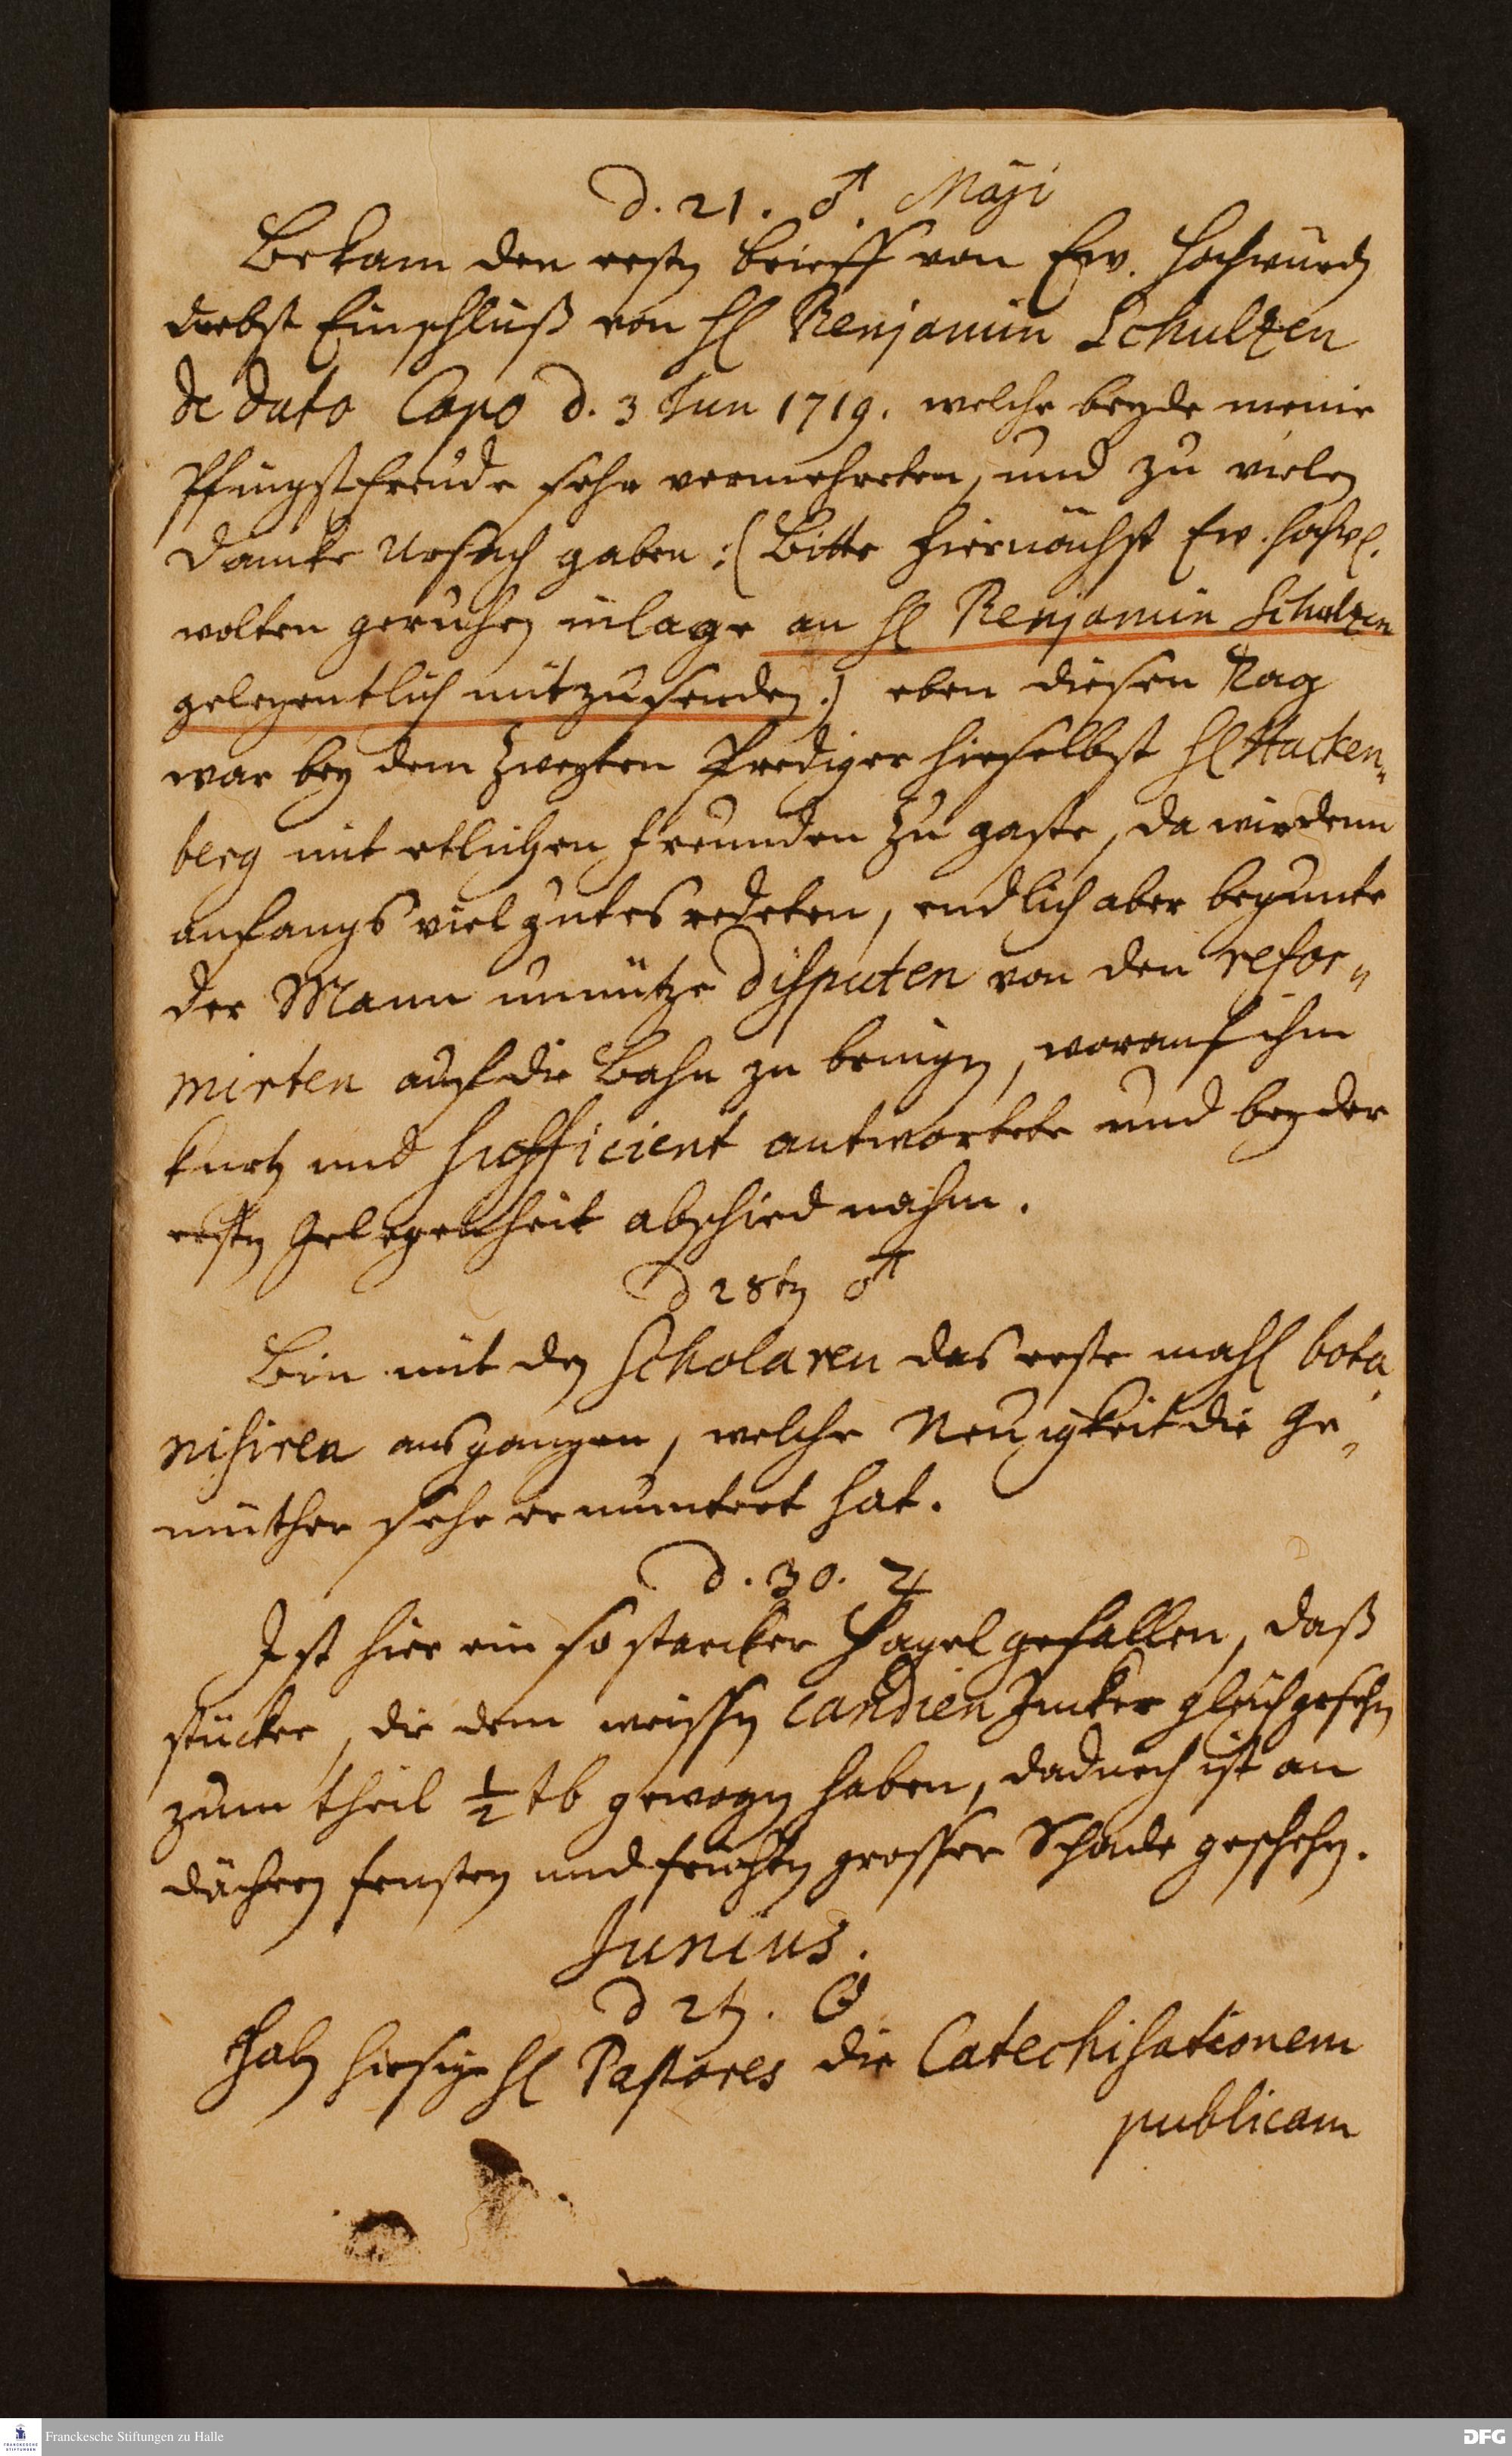 d. 21. ♂. Maji
Bekam den ersten brieff von Ew. Hochwürd
nebst Einschluß von H Benjamin Schultzen
de dato Capo d. 3 Jun 1719. welche beyde meine
Pfingstfreude sehr vermehreten, und zu vielen
dancke Ursach gaben: (Bitte hiernächst Ew. Hochw.
wolten geruhen inlage an H Benjamin Schultzen
gelegentlich mitzusenden.) eben diesen Tag
war bey dem zweyten Prediger hieselbst H Hacken-
berg mit etlichen freunden zu gaste, da wir denn
anfangs viel gutes redeten, endlich aber begunte
der Mann unnütze disputen von den refor-
mirten auf die Bahn zu bringen, worauf ihm
kurtz und sufficient antwortete und bey der
ersten Gelegenheit abschied nahm.
d 28ten ♂
Bin mit den Scholaren das erste mahl bota
nisiren ausgangen, welche Neuigkeit die Ge-
müther sehr ermuntert hat.
d. 30. ♃
Ist hier ein so starcker Hagel gefallen, daß
stücker, die dem weissen candien Zucker gleich gesehen
zum theil ½ tb gewogen haben, dadurch ist an
dächern fenstern und früchten grosser Schade geschehen.
Junius.
d 2ten. ☉
Haben hiesige H Pastores die Catechisationem
publicam
Franckesche Stiftungen zu Halle
DFG